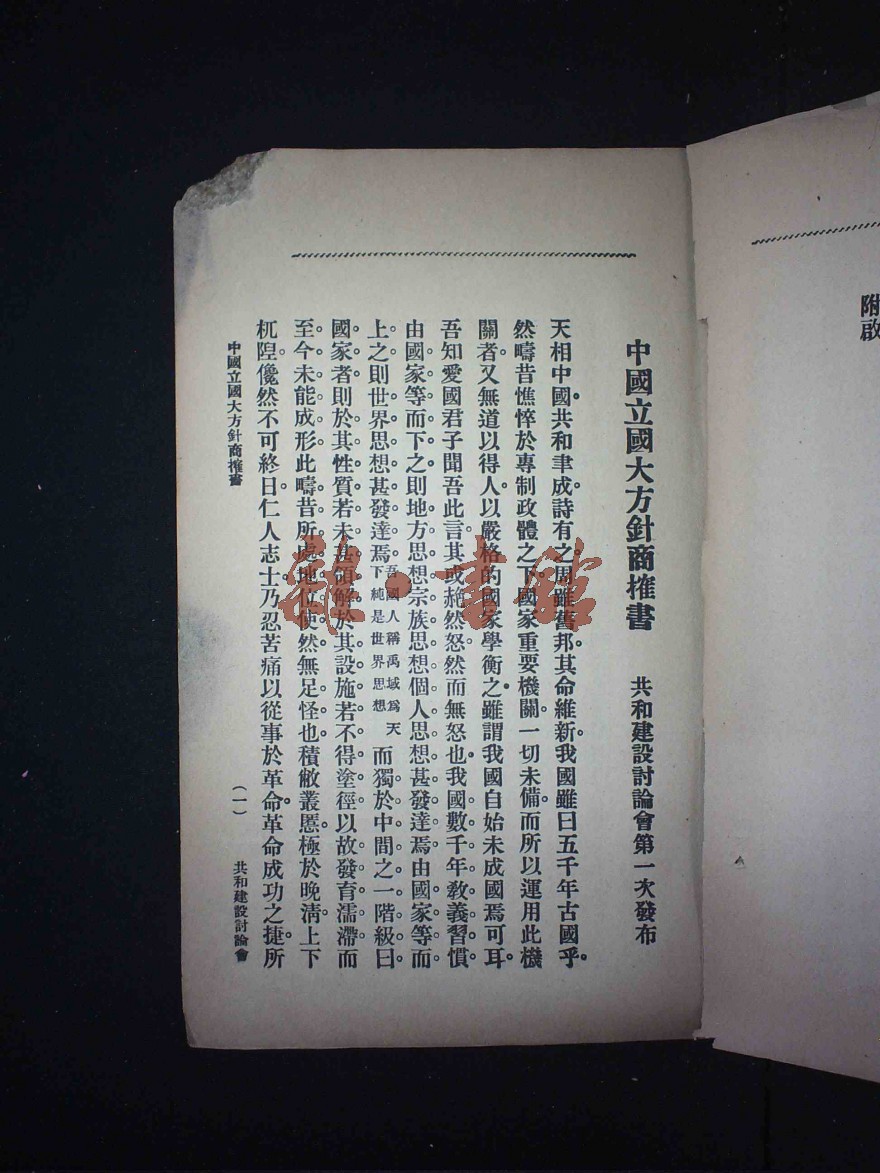 附啟
中國立國大方針商搉書　共和建設討論會第一次發布
天相中國。共和聿成。詩有之。周雖舊邦。其命維新。我國雖曰五千年古國乎。
然疇昔憔悴於專制政體之下。國家重要機關。一切未備。而所以運用此機
關者。又無道以得人。以嚴格的國家學衡之。雖謂我國自始未成國焉可耳。
吾知愛國君子聞吾此言。其或艴然怒。然而無怒也。我國數千年教義習慣。
由國家等而下之。則地方思想宗族思想個人思想甚發達焉。由國家等而
上之。則世界思想甚發達焉。吾國人稱禹域為天下純是世界思想 而獨於中間之一階級曰
國家者。則於其性質若未甚領解。於其設施若不得塗徑。以故發育濡滯。而
至今未能成形。此疇昔所處地位使然。無足怪也。積敝叢慝。極於晚清。上下
杌隉。儳然不可終日。仁人志士。乃忍苦痛以從事於革命。革命成功之捷。所
中國立國大方針商搉書　（一）　共和建設討論會
龍・書館